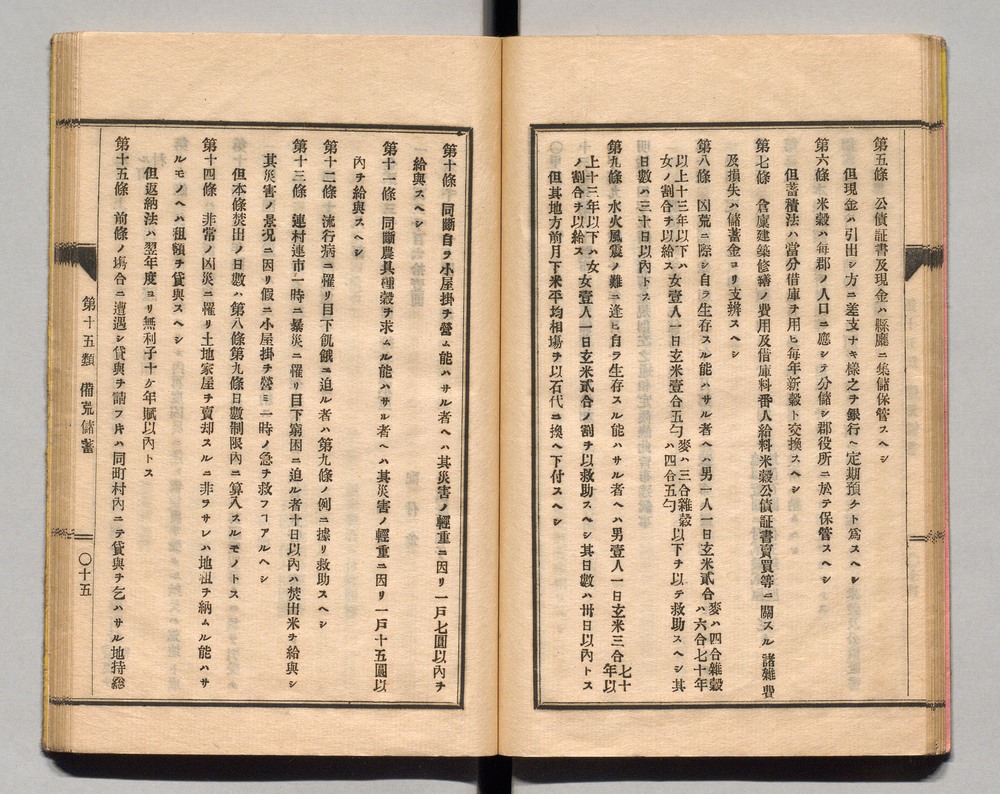 第五條　公債証書及現金ハ縣廳ニ集儲保管スヘシ
但現金ハ引出シ方ニ差支ナキ樣之ヲ銀行ヘ定期預ケト爲スヘシ
第六條　米穀ハ毎郡ノ人口ニ應シテ分儲シ郡役所ニ於テ保管スヘシ
但蓄積法ハ當分借庫ヲ用ヒ毎年新穀ト交換スヘシ
第七條　倉廩建築修繕ノ費用及借庫料番人給料米穀公債証書賣買等ニ關スル諸雜費
及損失ハ儲蓄金ヨリ支辨スヘシ
第八條　凶荒ニ際シ自ラ生存スル能ハサル者ヘハ男一人一日玄米貳合麥ハ四合雜穀ハ六合七十年
以上十三年以下ハ女ノ割合ヲ以給ス女壹人一日玄米壹合五勺麥ハ三合雜穀ハ四合五勺以下ヲ以テ救助スヘシ其
日數ハ三十日以內トス
第九條　水火風震ノ難ニ逢ヒ自ラ生存スル能ハサル者ヘハ男壹人一日玄米三合七十年以
上十三年以下ハ女ノ割合ヲ以給ス女壹人一日玄米貳合ノ割ヲ以救助スヘシ其日數ハ卅日以內トス
但其地方前月下米平均相場ヲ以石代ニ換ヘ下付スヘシ
第十條　同斷自ラ小屋掛ヲ營ム能ハサル者ヘハ其災害ノ輕重ニ因リ一戶七圓以內ヲ
給與スヘシ
第十一條　同斷農具種穀ヲ求ムル能ハサル者ヘハ其災害ノ輕重ニ因リ一戶十五圓以
內ヲ給與スヘシ
第十二條　流行病ニ罹リ目下飢餓ニ迫ル者ハ第九條ノ例ニ據リ救助スヘシ
第十三條　連村連市一時ニ暴災ニ罹リ目下窮困ニ迫ル者十日以內ハ焚出米ヲ給與シ
其災害ノ景況ニ因リ假ニ小屋掛ヲ營ミ一時ノ急ヲ救フコアルヘシ
但本條焚出ノ日數ハ第八條第九條日數制限內ニ算入スルモノトス
第十四條　非常ノ凶災ニ罹リ土地家屋ヲ賣却スルニ非ラサレハ地租ヲ納ムル能ハサ
ルモノヘハ租額ヲ貸與スヘシ
但返納法ハ翌年度ヨリ無利子十ケ年賦以內トス
第十五條　前條ノ塲合ニ遭遇シ貸與ヲ請フ片ハ同町村內ニテ貸與ヲ乞ハサル地持総
第十五類　備荒儲蓄
〇十五